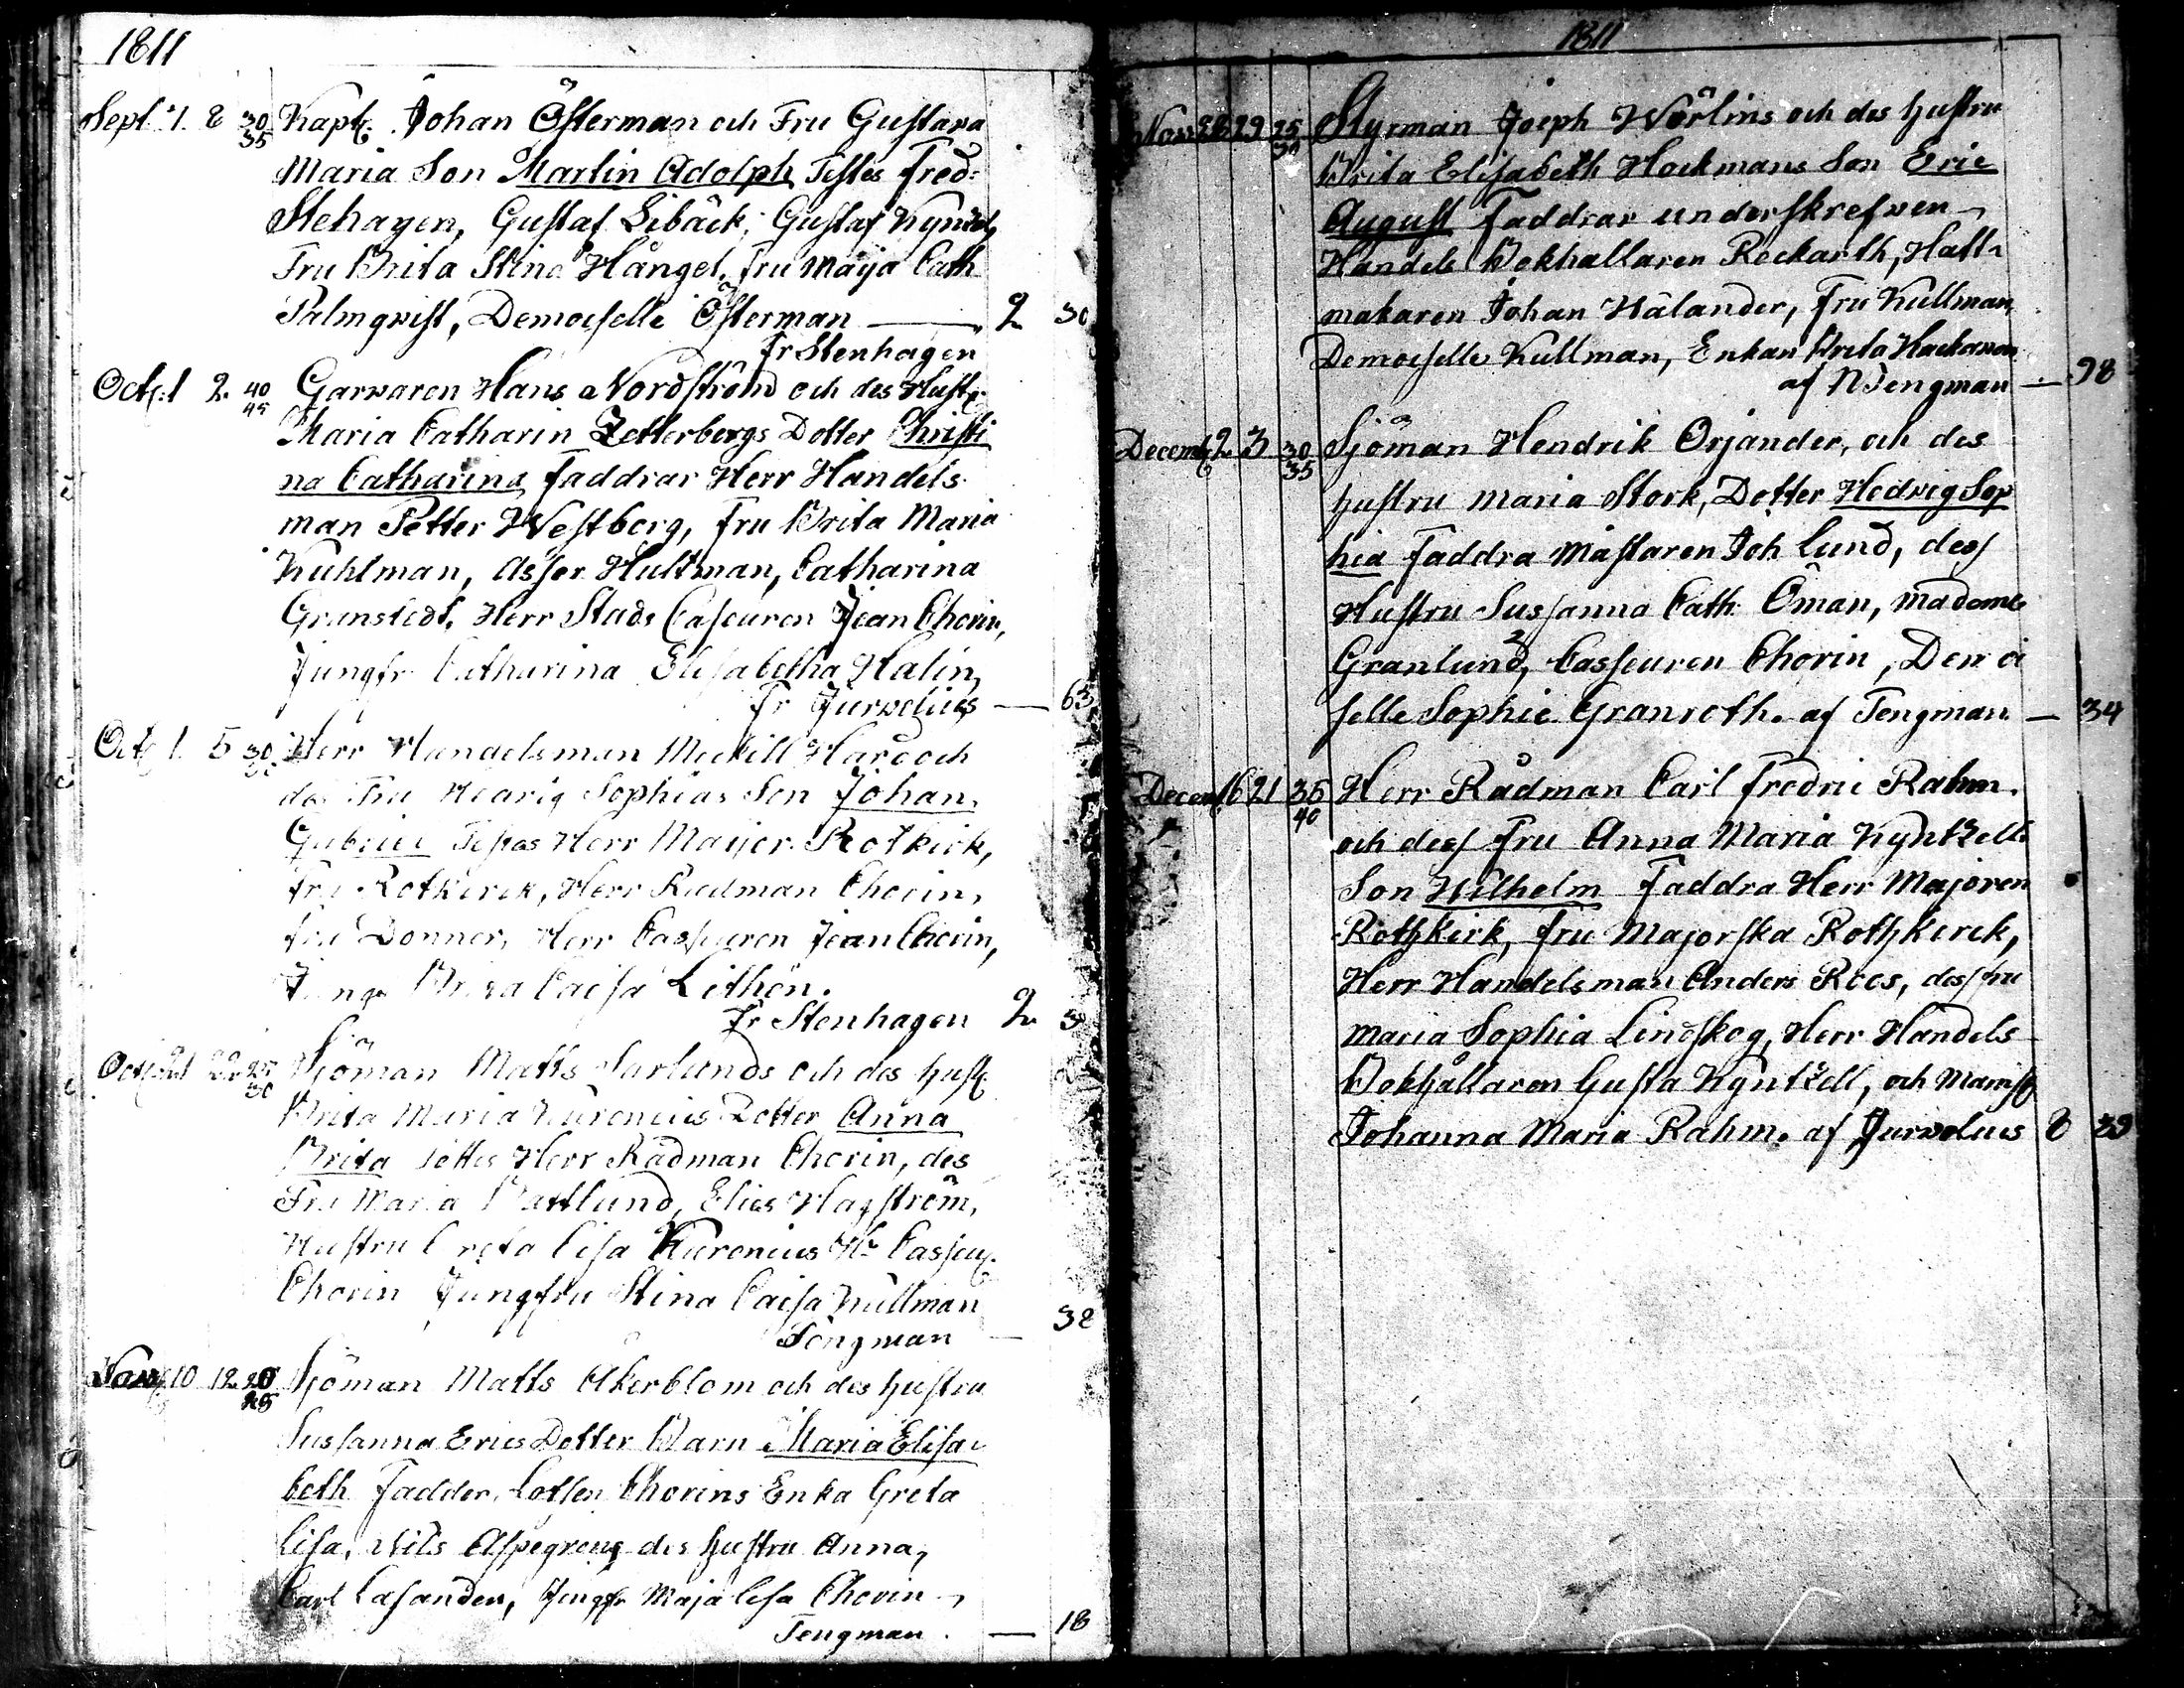 1811
Sept. 7. 8 30 35 Kapt. Johan Österman och Fru Gustava
Maria Son Martin Adolph Testes Fred:
Stehagen, Gustaf Libäck, Gustaf Kyntzel,
Fru Brita Stina Hångel, fru Maija Cath
Palmqvist, Demoiselle Österman — 2 30
fr Stenhagen
Oct. 1 2. 40 45 Garvaren Hans Nordström och des Hust.
Maria Catharin Zetterbergs Dotter Christi
na Catharina, faddrar Herr Handels
man Petter Westberg, fru Brita Maria
Kuhlman, Asser Hultman, Catharina
Granstedt, Herr Stads Caseuren Jean Chorin,
Jungfr Catharina Elisabetha Halin,
fr Jurvelius — 63
Oct. 1. 5 30 Herr Handelsman Mickill Hard och
des Fru Hedvig Sophias Son Johan
Gabriel Testes Herr Maijor Rotkirk,
fru Rotkirck, Herr Rådman Chorin,
fru Donner, Herr Casseuren Jean Chorin,
Jungf Brita Caisa Lithén.
fr Stenhagen 2
Oct. 21 22 25 30 Sjöman Matts Sarlunds och des hust.
Brita Maria Kurenius Dotter Anna
Brita Testes Herr Rådman Chorin, des
Fru Maria, Elias Hagström,
Hustru Greta Lisa Kurenius Hr Casseur.
Chorin Jungfru Stina Caisa Kullman
Tengman — 32
Nov. 10 12 20 25 Sjöman Matts Åkerblom och des hustru
Sussanna Erics Dotter Barn Maria Elisa
beth Fadder, Lotsen Chorins Enka Greta
Lisa, Nils Aspegrens des hustru Anna,
Carl Casanden, Jungfr Maja Lisa Chorin,
Tengman. — 18
1811
Nov. 28 29 25 30 Styrman Joseph Wörlins och des hustru
Brita Elisabeth Hockmans Son Eric
August Faddrar underskrefven
Handels Bokhallaren Rockarth, Hatt-
makaren Johan Hålander, fru Kullman,
Demoiselle Kullman, Enkan Brita Hackman
af N Tengman — 98
Decemb. 2. 3 30 35 Sjöman Hendrik Orjander, och des
hustru Maria Stork, Dotter Hedvig Sop
hia Faddra Mästaren Joh Lund, dess
Hustru Sussanna Cath: Öman, Madame
Granlund, Casseuren Chorin, Demoi
selle Sophie Granroth. af Tengman. — 34
Decem. 16 21 35 40 Herr Rådman Carl Fredric Rahm.
och dess Fru Anna Maria Kyntzells
Son Wilhelm Faddra Herr Majoren
Rothkirk, fru Majorska Rothkirck,
Herr Handelsman Anders Roos, dess fru
Maria Sophia Lindskog, Herr Handels
Bokhållaren Gusta Kyntzell, och Mamsell
Johanna Maria Rahm. af Jurvelius 8 39